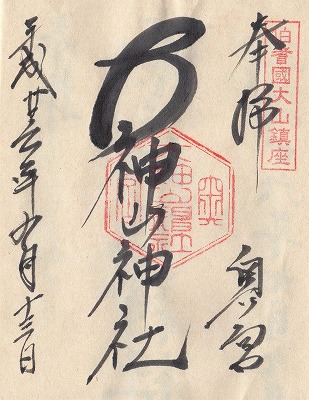 伯耆國大山鎮座
奉拝
奥宮
大神山神社
平成廿六年九月十三日